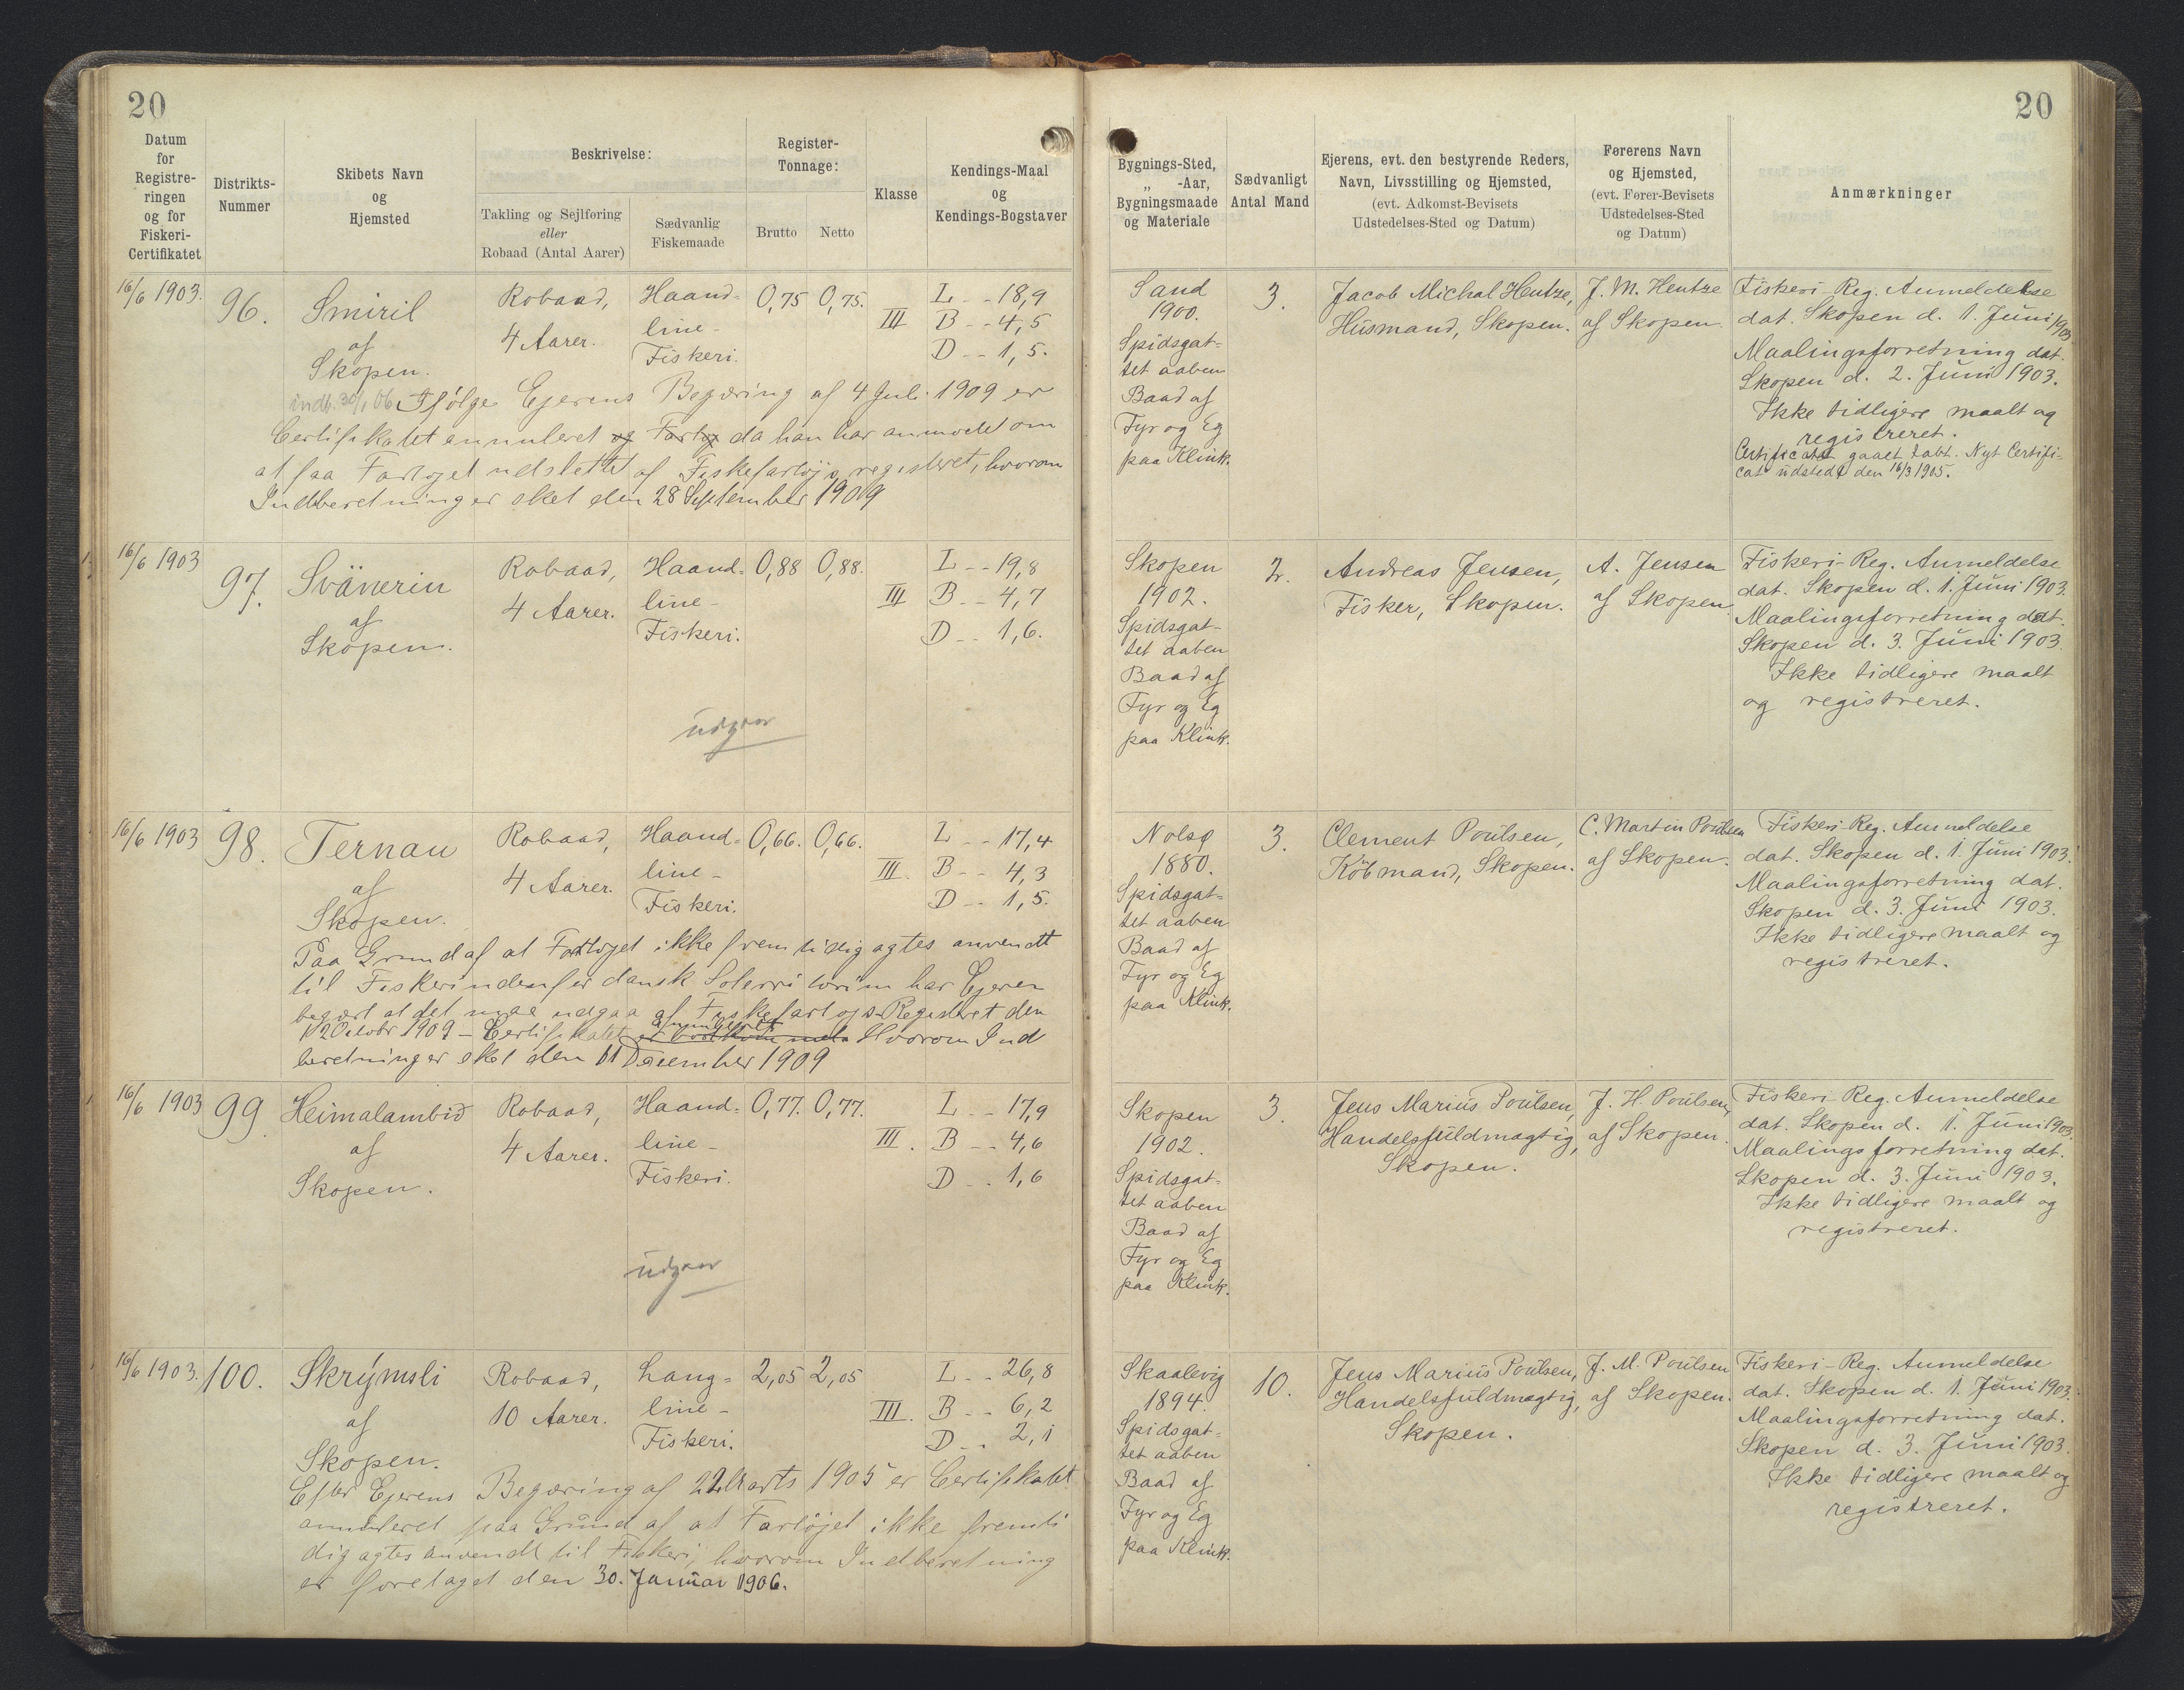 20
20
Datum for Registreringen og for Fiskeri-Certifikatet
Distrikts-Nummer
Skibets Navn og Hjemsted
Beskrivelse:
Takling og Sejlføring eller Robaad (Antal Aarer)
Sædvanlig Fiskemaade
Register-Tonnage:
Brutto
Netto
Klasse
Kendings-Maal og Kendings-Bogstaver
Bygnings-Sted, „ -Aar, Bygningsmaade og Materiale
Sædvanligt Antal Mand
Ejerens, evt. den bestyrende Reders, Navn, Livsstilling og Hjemsted, (evt. Adkomst-Bevisets Udstedelses-Sted og Datum)
Førerens Navn og Hjemsted, (evt. Fører-Bevisets Udstedelses-Sted og Datum)
Anmærkninger
16/6 1903. 96. Smiril
af
Skopen.
Robaad,
4 Aarer.
Haand-
line-
Fiskeri.
0,75 0,75.
III
L -- 18,9
B -- 4,5
D -- 1,5.
indb. 30/1 06 Ifølge Ejerens Begæring af 4 Juli 1909 er
Certifikatet annuleret og Fartøj da han har anmodet om
at faa Fartøjet udslettet af Fiskefartøjsregisteret, hvorom
Indberetning er sket den 28 September 1909
Sand
1900.
Spidsgat-
tet aaben
Baad af
Fyr og Eg
paa Klink.
3.
Jacob Michal Hentze,
Husmand, Skopen.
J. M. Hentze
af Skopen.
Fiskeri-Reg. Anmeldelse
dat. Skopen d. 1. Juni 1903.
Maalingsforretning dat.
Skopen d. 2. Juni 1903.
Ikke tidligere maalt og
registreret.
Certificatet gaaet tabt. Nyt Certifi-
cat udstedt den 16/3 1905.
16/6 1903 97. Svänerin
af
Skopen.
Robaad,
4 Aarer.
Haand-
line-
Fiskeri.
0,88 0,88.
III
L -- 19,8
B -- 4,7
D -- 1,6.
udgaar
Skopen
1902.
Spidsgat-
tet aaben
Baad af
Fyr og Eg
paa Klink.
2.
Andreas Jensen,
Fisker, Skopen.
A. Jensen
af Skopen.
Fiskeri-Reg. Anmeldelse
dat. Skopen d. 1. Juni 1903.
Maalingsforretning dat.
Skopen d. 3. Juni 1903.
Ikke tidligere maalt
og registreret.
16/6 1903 98. Ternan
af
Skopen.
Robaad,
4 Aarer.
Haand-
line-
Fiskeri.
0,66. 0,66.
III.
L -- 17,4
B -- 4,3
D -- 1,5.
Paa Grund af at Fartøjet ikke fremtidig agtes anvendt
til Fiskeri indenfor dansk Søterritorium har Ejeren
begært at det maa udgaa af Fiskefartøjs-Registeret den
12 Octobr 1909 - Certifikatet annulleret Hvorom Ind
beretning er sket den 11 December 1909
Nolsø
1880.
Spidsgat-
tet aaben
Baad af
Fyr og Eg
paa Klink.
3.
Clement Poulsen,
Købmand, Skopen.
C. Martin Poulsen
af Skopen.
Fiskeri-Reg. Anmeldelse
dat. Skopen d. 1. Juni 1903.
Maalingsforretning dat.
Skopen d. 3. Juni 1903.
Ikke tidligere maalt og
registreret.
16/6 1903 99. Heimalambið
af
Skopen.
Robaad,
4 Aarer.
Haand-
line-
Fiskeri.
0,77. 0,77.
III.
L -- 17,9
B -- 4,6
D -- 1,6
udgaar
Skopen
1902.
Spidsgat-
tet aaben
Baad af
Fyr og Eg
paa Klink.
3.
Jens Marius Poulsen,
Handelsfuldmægtig,
Skopen.
J. H. Poulsen,
af Skopen.
Fiskeri-Reg. Anmeldelse
dat. Skopen d. 1. Juni 1903.
Maalingsforretning dat.
Skopen d. 3. Juni 1903.
Ikke tidligere maalt og
registreret.
16/6 1903. 100. Skrýmsli
af
Skopen.
Robaad,
10 Aarer.
Lang-
line-
Fiskeri.
2,05 2,05
III.
L -- 26,8
B -- 6,2
D -- 2,1
Efter Ejerens Begæring af 22 Marts 1905 er Certifikatet
annuleret paa Grund af at Fartøjet ikke fremti
dig agtes anvendt til Fiskeri, hvorom Indberetning
er foretaget den 30. Januar 1906.
Skaalevig
1894.
Spidsgat-
tet aaben
Baad af
Fyr og Eg
paa Klink.
10.
Jens Marius Poulsen,
Handelsfuldmægtig,
Skopen.
J. M. Poulsen
af Skopen.
Fiskeri-Reg. Anmeldelse
dat. Skopen d. 1. Juni 1903.
Maalingsforretning dat.
Skopen d. 3. Juni 1903.
Ikke tidligere maalt og
registreret.